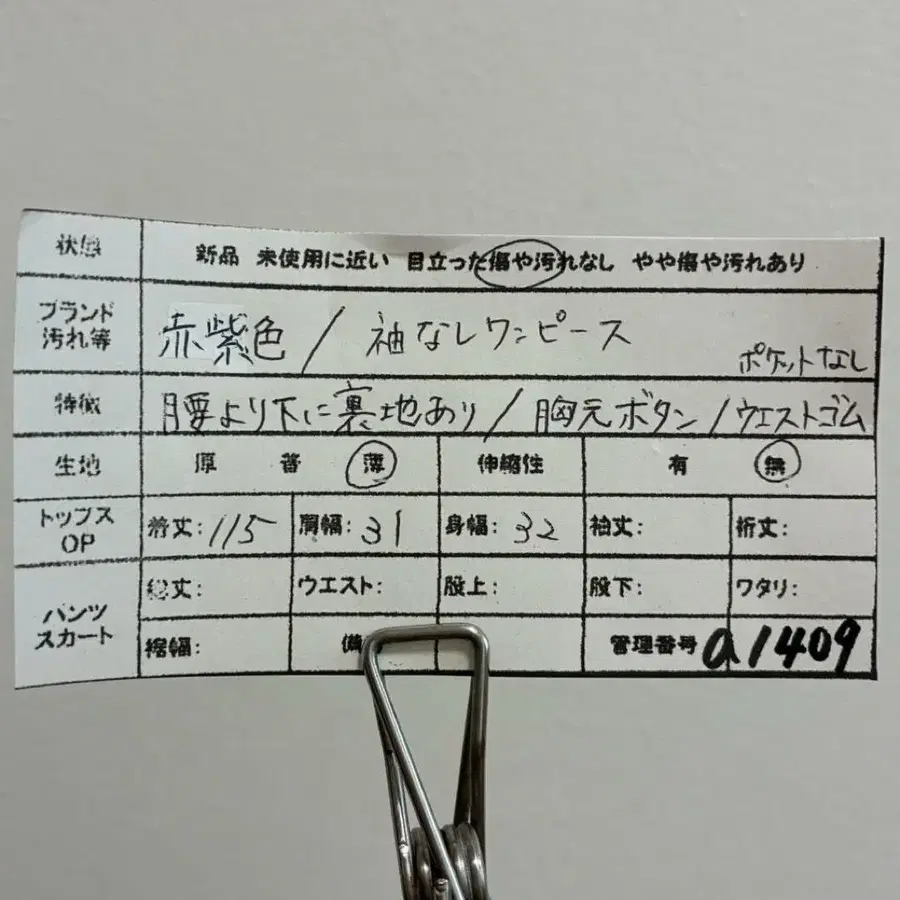 状態 新品 未使用に近い 目立った傷や汚れなし やや傷や汚れあり
ブランド 汚れ等 赤紫色 / 袖なしワンピース ポケットなし
特徴 腰より下に裏地あり / 胸元ボタン / ウエストゴム
生地 厚 普 薄 伸縮性 有 無
トップス OP 着丈: 115 肩幅: 31 身幅: 32 袖丈: 裄丈:
パンツ スカート 総丈: ウエスト: 股上: 股下: ワタリ:
裾幅: 備 管理番号 a1409